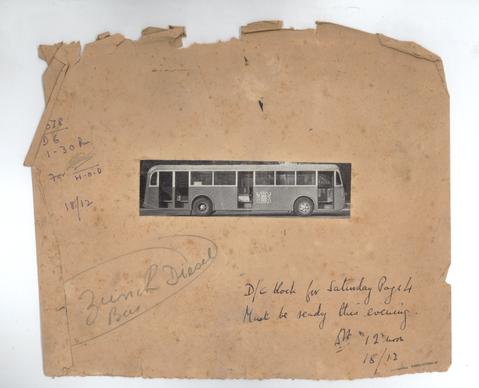 D6
1-30 P
For H.O.D
18/12
Zurich Diesel
Bus
D/C block for Saturday Page 4
Must be ready this evening.
12 noon
18/12